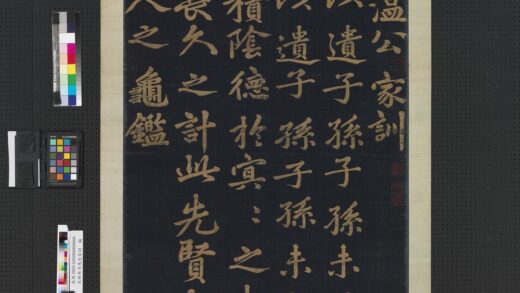 溫公家訓
以遺子孫子孫未
以遺子孫子孫未
積陰德於冥〻之中
長久之計此先賢
人之龜鑑